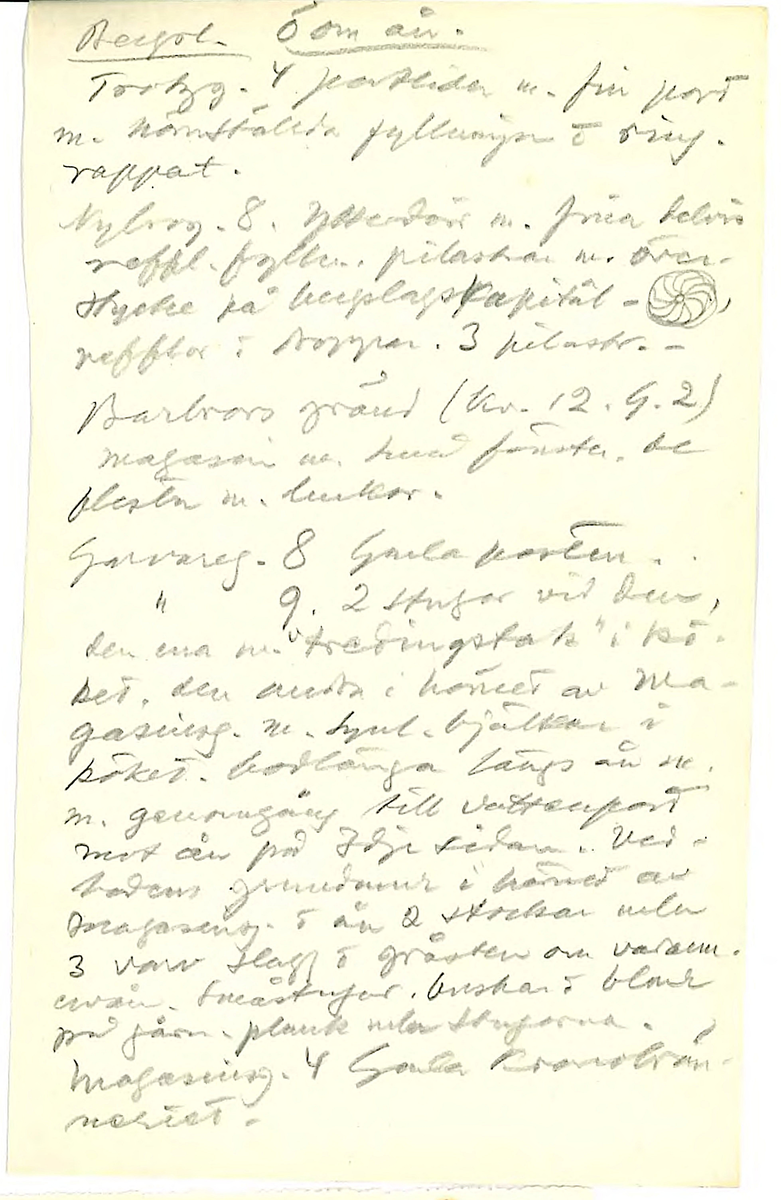 Bergsl. Ö om ån.
Trotzg. 4 portlider m. fin port
m. hörnställda fyllningar o ring.
rappat.
Nybrog. 8. Ytterdörr m. fina delvis
reffl. fylln. pilastrar m. över-
stycke på bergslagskapitäl -
refflor i kroppen. 3 pilastr. -
Barbros gränd (kv. 12. G. 2)
magasin m. små fönster, de
flesta m. luckor.
Garvareg. 8 Gamla posten.
" 9. 2 stugor vid den,
den ena m. "tredingstak" i kö-
ket, den andra i hörnet av Ma-
gasinsg. m. synl. bjälkar i
köket. bodlänga längs ån m.
m. genomgång till vattenport
mot ån på sidan. Ved-
bodens grundmur i hörnet av
Magasinsg. o ån 2 stockar mellan
3 varv slagg o gråsten om varann.
ovan. Småstugor, buskar o blom
på gårn. plank mellan stugorna.
Magasinsg. 4 Gamla Kronobrän-
neriet.